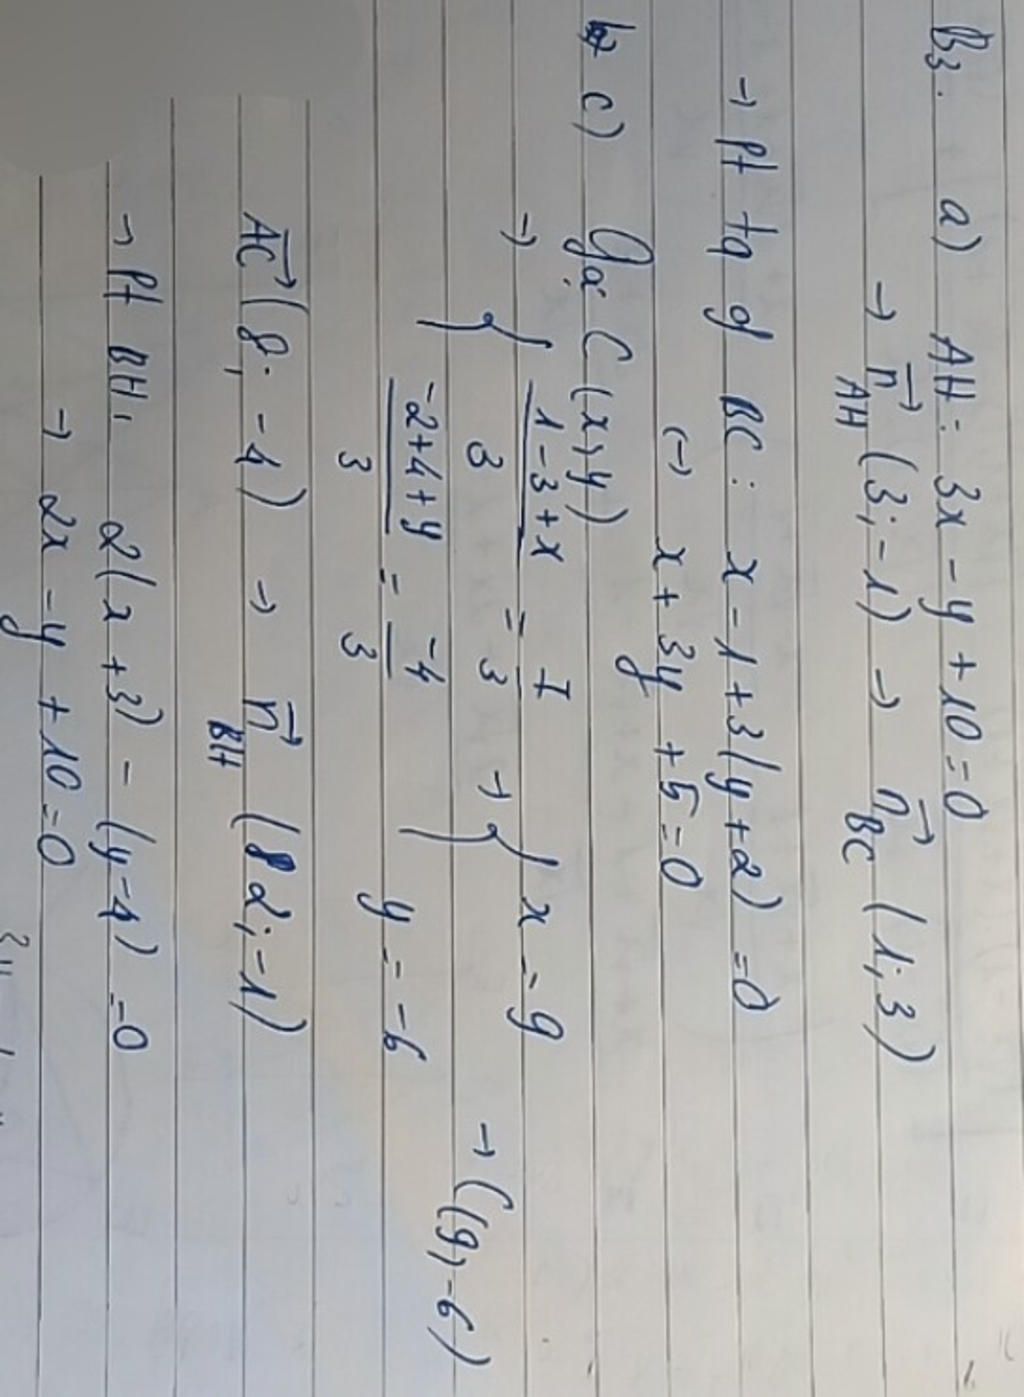 B3. a) AH: 3x - y + 10 = 0
→ n⃗ AH (3; -1) → n⃗ BC (1; 3)
→ Pt tq of BC: x - 1 + 3(y + 2) = 0
(→ x + 3y + 5 = 0
c) Gọi C (x, y)
→ { (1 - 3 + x)/3 = 7/3 → { x = 9
(-2 + 4 + y)/3 = -4/3 y = -6 → C(9, -6)
AC⃗ (8; -4) → n⃗ BH (2; -1)
→ Pt BH: 2(x + 3) - (y - 4) = 0
→ 2x - y + 10 = 0